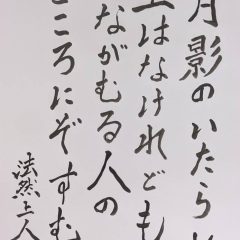 月影のいたら
はなけれども
ながむる人の
ころにぞすむ
法然上人